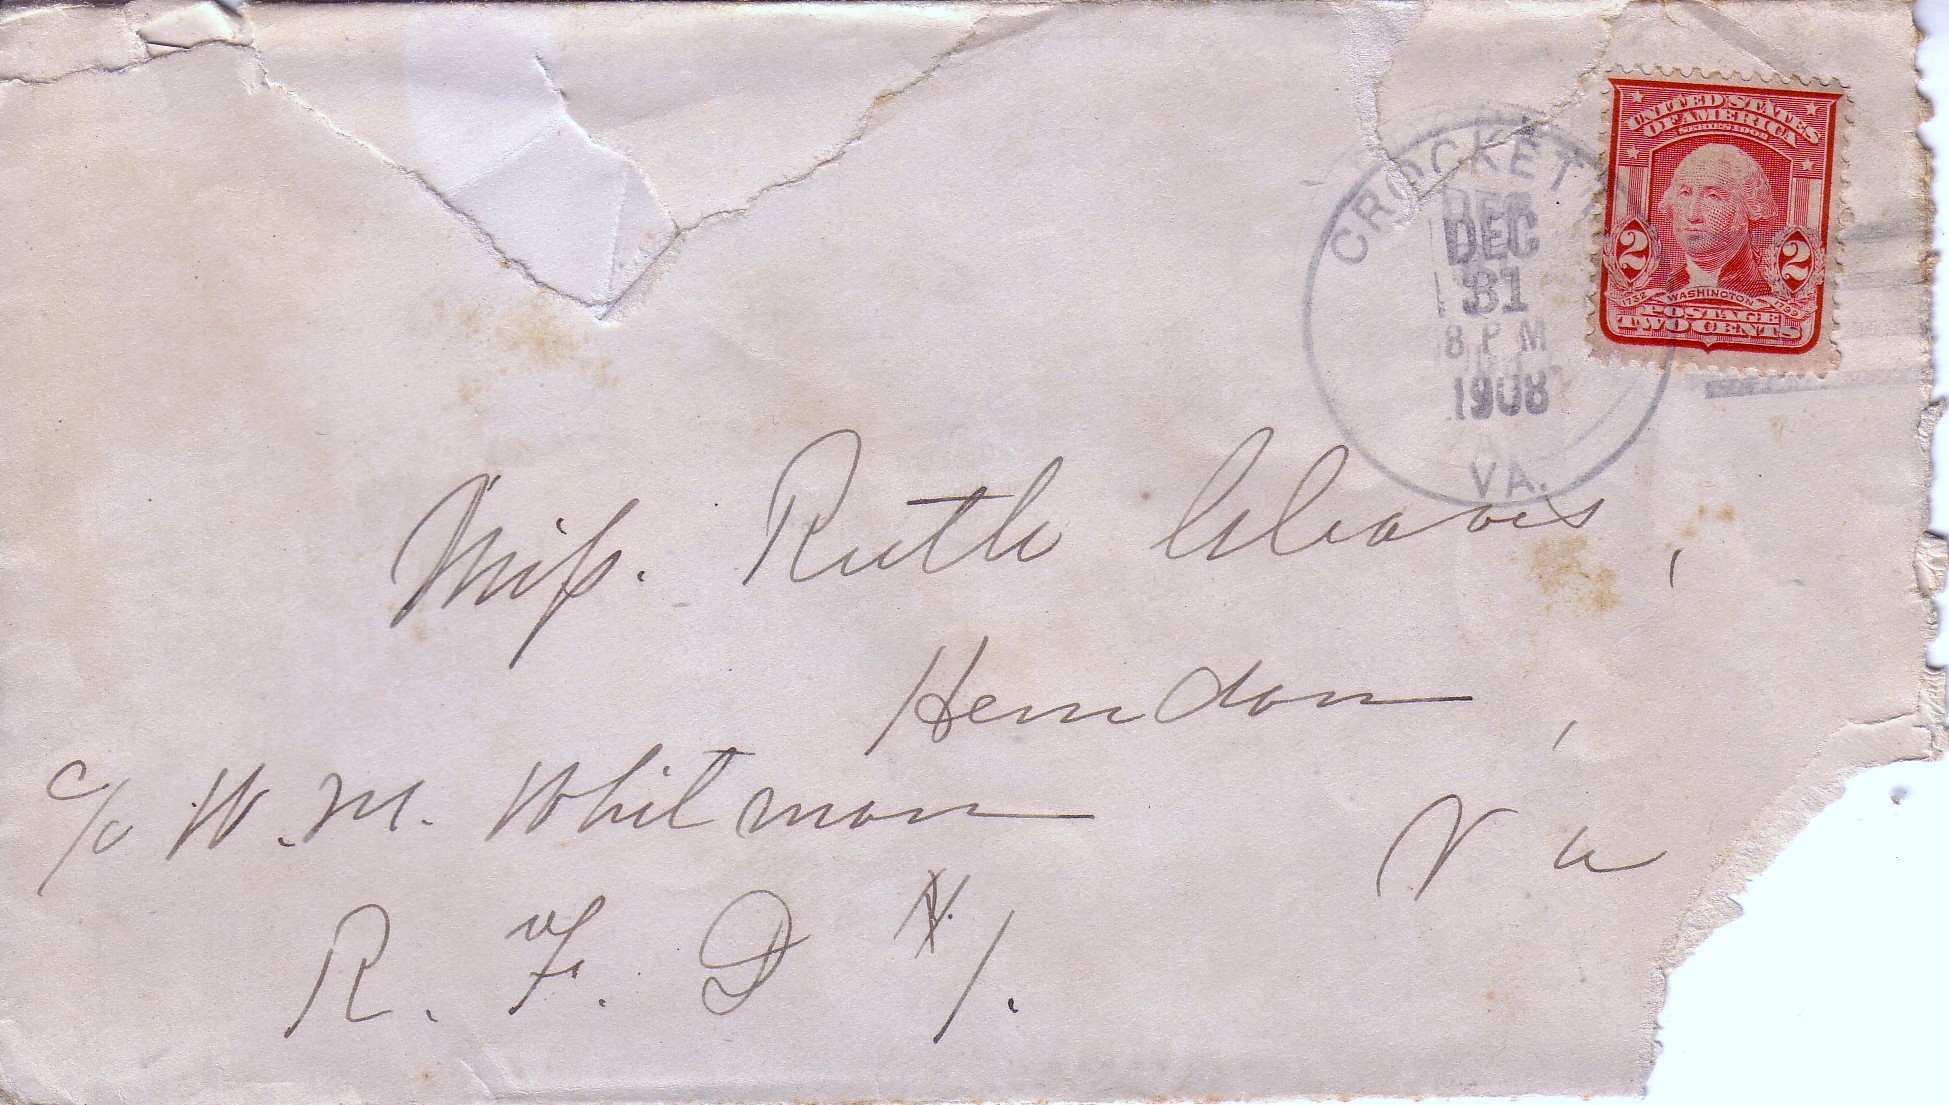 CROCKETT
DEC
31
8 P M
1908
VA.
UNITED STATES
OF AMERICA
SERIES 1902
2 2
1732 WASHINGTON 1799
POSTAGE
TWO CENTS
Miss. Ruth Cleaves,
Herndon,
c/o W. M. Whitman
Va
R. F. D #1.